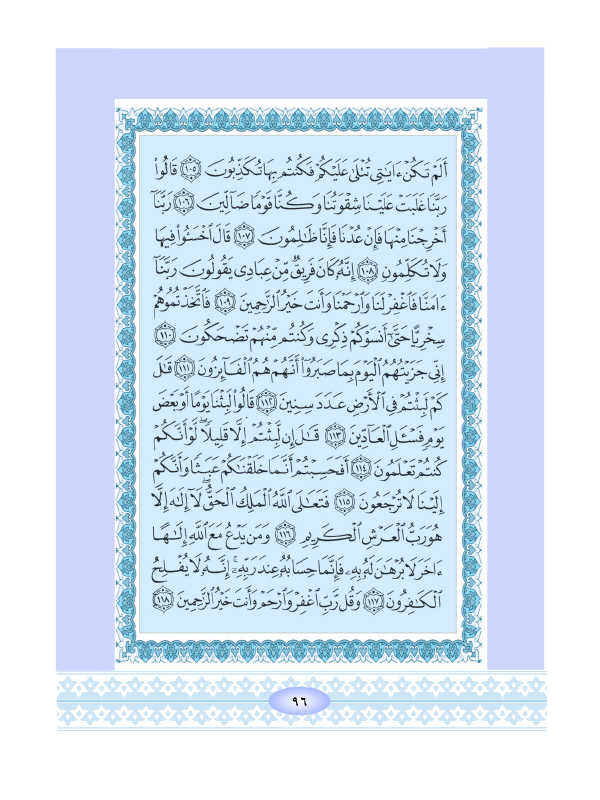 أَلَمْ تَكُنْ ءَايَٰتِى تُتْلَىٰ عَلَيْكُمْ فَكُنتُم بِهَا تُكَذِّبُونَ ١٠٥ قَالُوا۟
رَبَّنَا غَلَبَتْ عَلَيْنَا شِقْوَتُنَا وَكُنَّا قَوْمًا ضَآلِّينَ ١٠٦ رَبَّنَآ
أَخْرِجْنَا مِنْهَا فَإِنْ عُدْنَا فَإِنَّا ظَٰلِمُونَ ١٠٧ قَالَ ٱخْسَـُٔوا۟ فِيهَا
وَلَا تُكَلِّمُونِ ١٠٨ إِنَّهُۥ كَانَ فَرِيقٌ مِّنْ عِبَادِى يَقُولُونَ رَبَّنَآ
ءَامَنَّا فَٱغْفِرْ لَنَا وَٱرْحَمْنَا وَأَنتَ خَيْرُ ٱلرَّٰحِمِينَ ١٠٩ فَٱتَّخَذْتُمُوهُمْ
سِخْرِيًّا حَتَّىٰٓ أَنسَوْكُمْ ذِكْرِى وَكُنتُم مِّنْهُمْ تَضْحَكُونَ ١١٠
إِنِّى جَزَيْتُهُمُ ٱلْيَوْمَ بِمَا صَبَرُوٓا۟ أَنَّهُمْ هُمُ ٱلْفَآئِزُونَ ١١١ قَٰلَ
كَمْ لَبِثْتُمْ فِى ٱلْأَرْضِ عَدَدَ سِنِينَ ١١٢ قَالُوا۟ لَبِثْنَا يَوْمًا أَوْ بَعْضَ
يَوْمٍ فَسْـَٔلِ ٱلْعَآدِّينَ ١١٣ قَٰلَ إِن لَّبِثْتُمْ إِلَّا قَلِيلًا ۖ لَّوْ أَنَّكُمْ
كُنتُمْ تَعْلَمُونَ ١١٤ أَفَحَسِبْتُمْ أَنَّمَا خَلَقْنَٰكُمْ عَبَثًا وَأَنَّكُمْ
إِلَيْنَا لَا تُرْجَعُونَ ١١٥ فَتَعَٰلَى ٱللَّهُ ٱلْمَلِكُ ٱلْحَقُّ ۖ لَآ إِلَٰهَ إِلَّا
هُوَ رَبُّ ٱلْعَرْشِ ٱلْكَرِيمِ ١١٦ وَمَن يَدْعُ مَعَ ٱللَّهِ إِلَٰهًا
ءَاخَرَ لَا بُرْهَٰنَ لَهُۥ بِهِۦ فَإِنَّمَا حِسَابُهُۥ عِندَ رَبِّهِۦٓ ۚ إِنَّهُۥ لَا يُفْلِحُ
ٱلْكَٰفِرُونَ ١١٧ وَقُل رَّبِّ ٱغْفِرْ وَٱرْحَمْ وَأَنتَ خَيْرُ ٱلرَّٰحِمِينَ ١١٨
٩٦